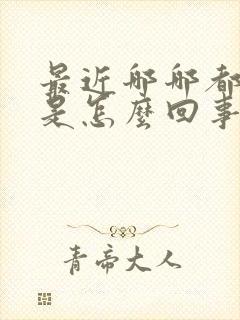 最近哪哪都
是怎麼回事
青帝大人